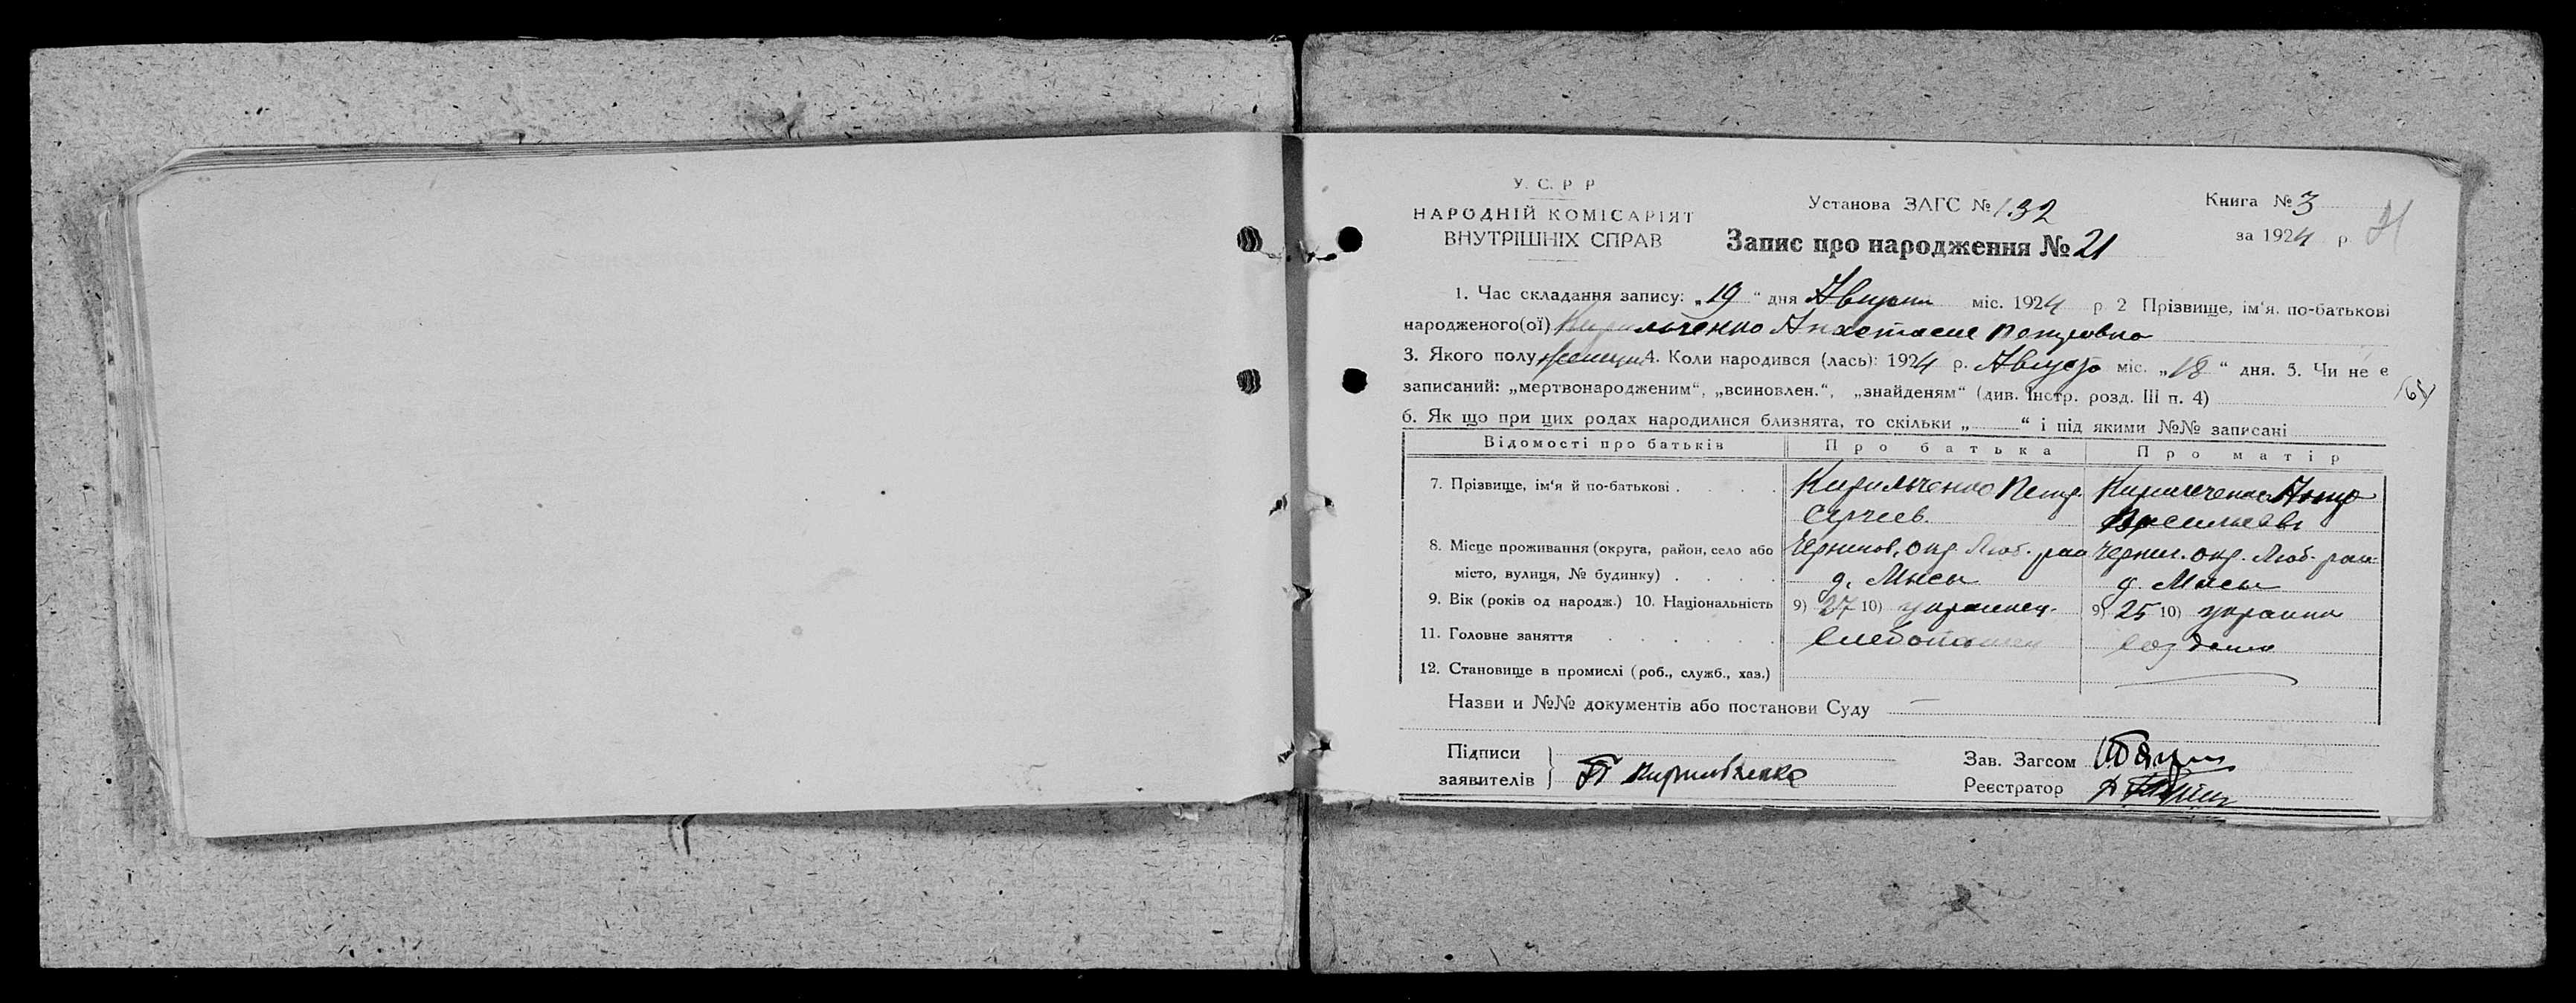 У. С. Р Р
НАРОДНІЙ КОМІСАРІЯТ
ВНУТРІШНІХ СПРАВ
Установа ЗАГС № 132
Запис про народження № 21
Книга № 3
за 1924 р.
21
1. Час складання запису: „19“ дня Августа міс. 1924 р 2 Прізвище, ім'я, по-батькові
народженого(ої) Кирильченко Анастасие Петровна
3. Якого полу женщин 4. Коли народився (лась): 1924 р. Август міс. „18“ дня. 5. Чи не є
записаний: „мертвонародженим“, „всиновлен.“, „знайденям“ (див. Інстр. розд. III п. 4)
6. Як що при цих родах народилися близнята, то скільки „ “ і під якими №№ записані
Відомості про батьків Про батька Про матір
7. Прізвище, ім'я й по-батькові . . . . . Кирильченко Петр. Кирильченко Анна
Сергеев. Васильевн
8. Місце проживання (округа, район, село або Чернигов. окр. Люб. рай Черниг. окр. Люб. рай
місто, вулиця, № будинку) . . . . д. Мысы д. Мысы
9. Вік (років од народж.) 10. Національність 9) 27 10) украинец. 9) 25 10) украинка
11. Головне заняття . . . . . . Хлебопашец
12. Становище в промислі (роб., служб., хаз.)
Назви и №№ документів або постанови Суду —
Підписи
заявителів } П Кирильченко
Зав. Загсом
Реєстратор